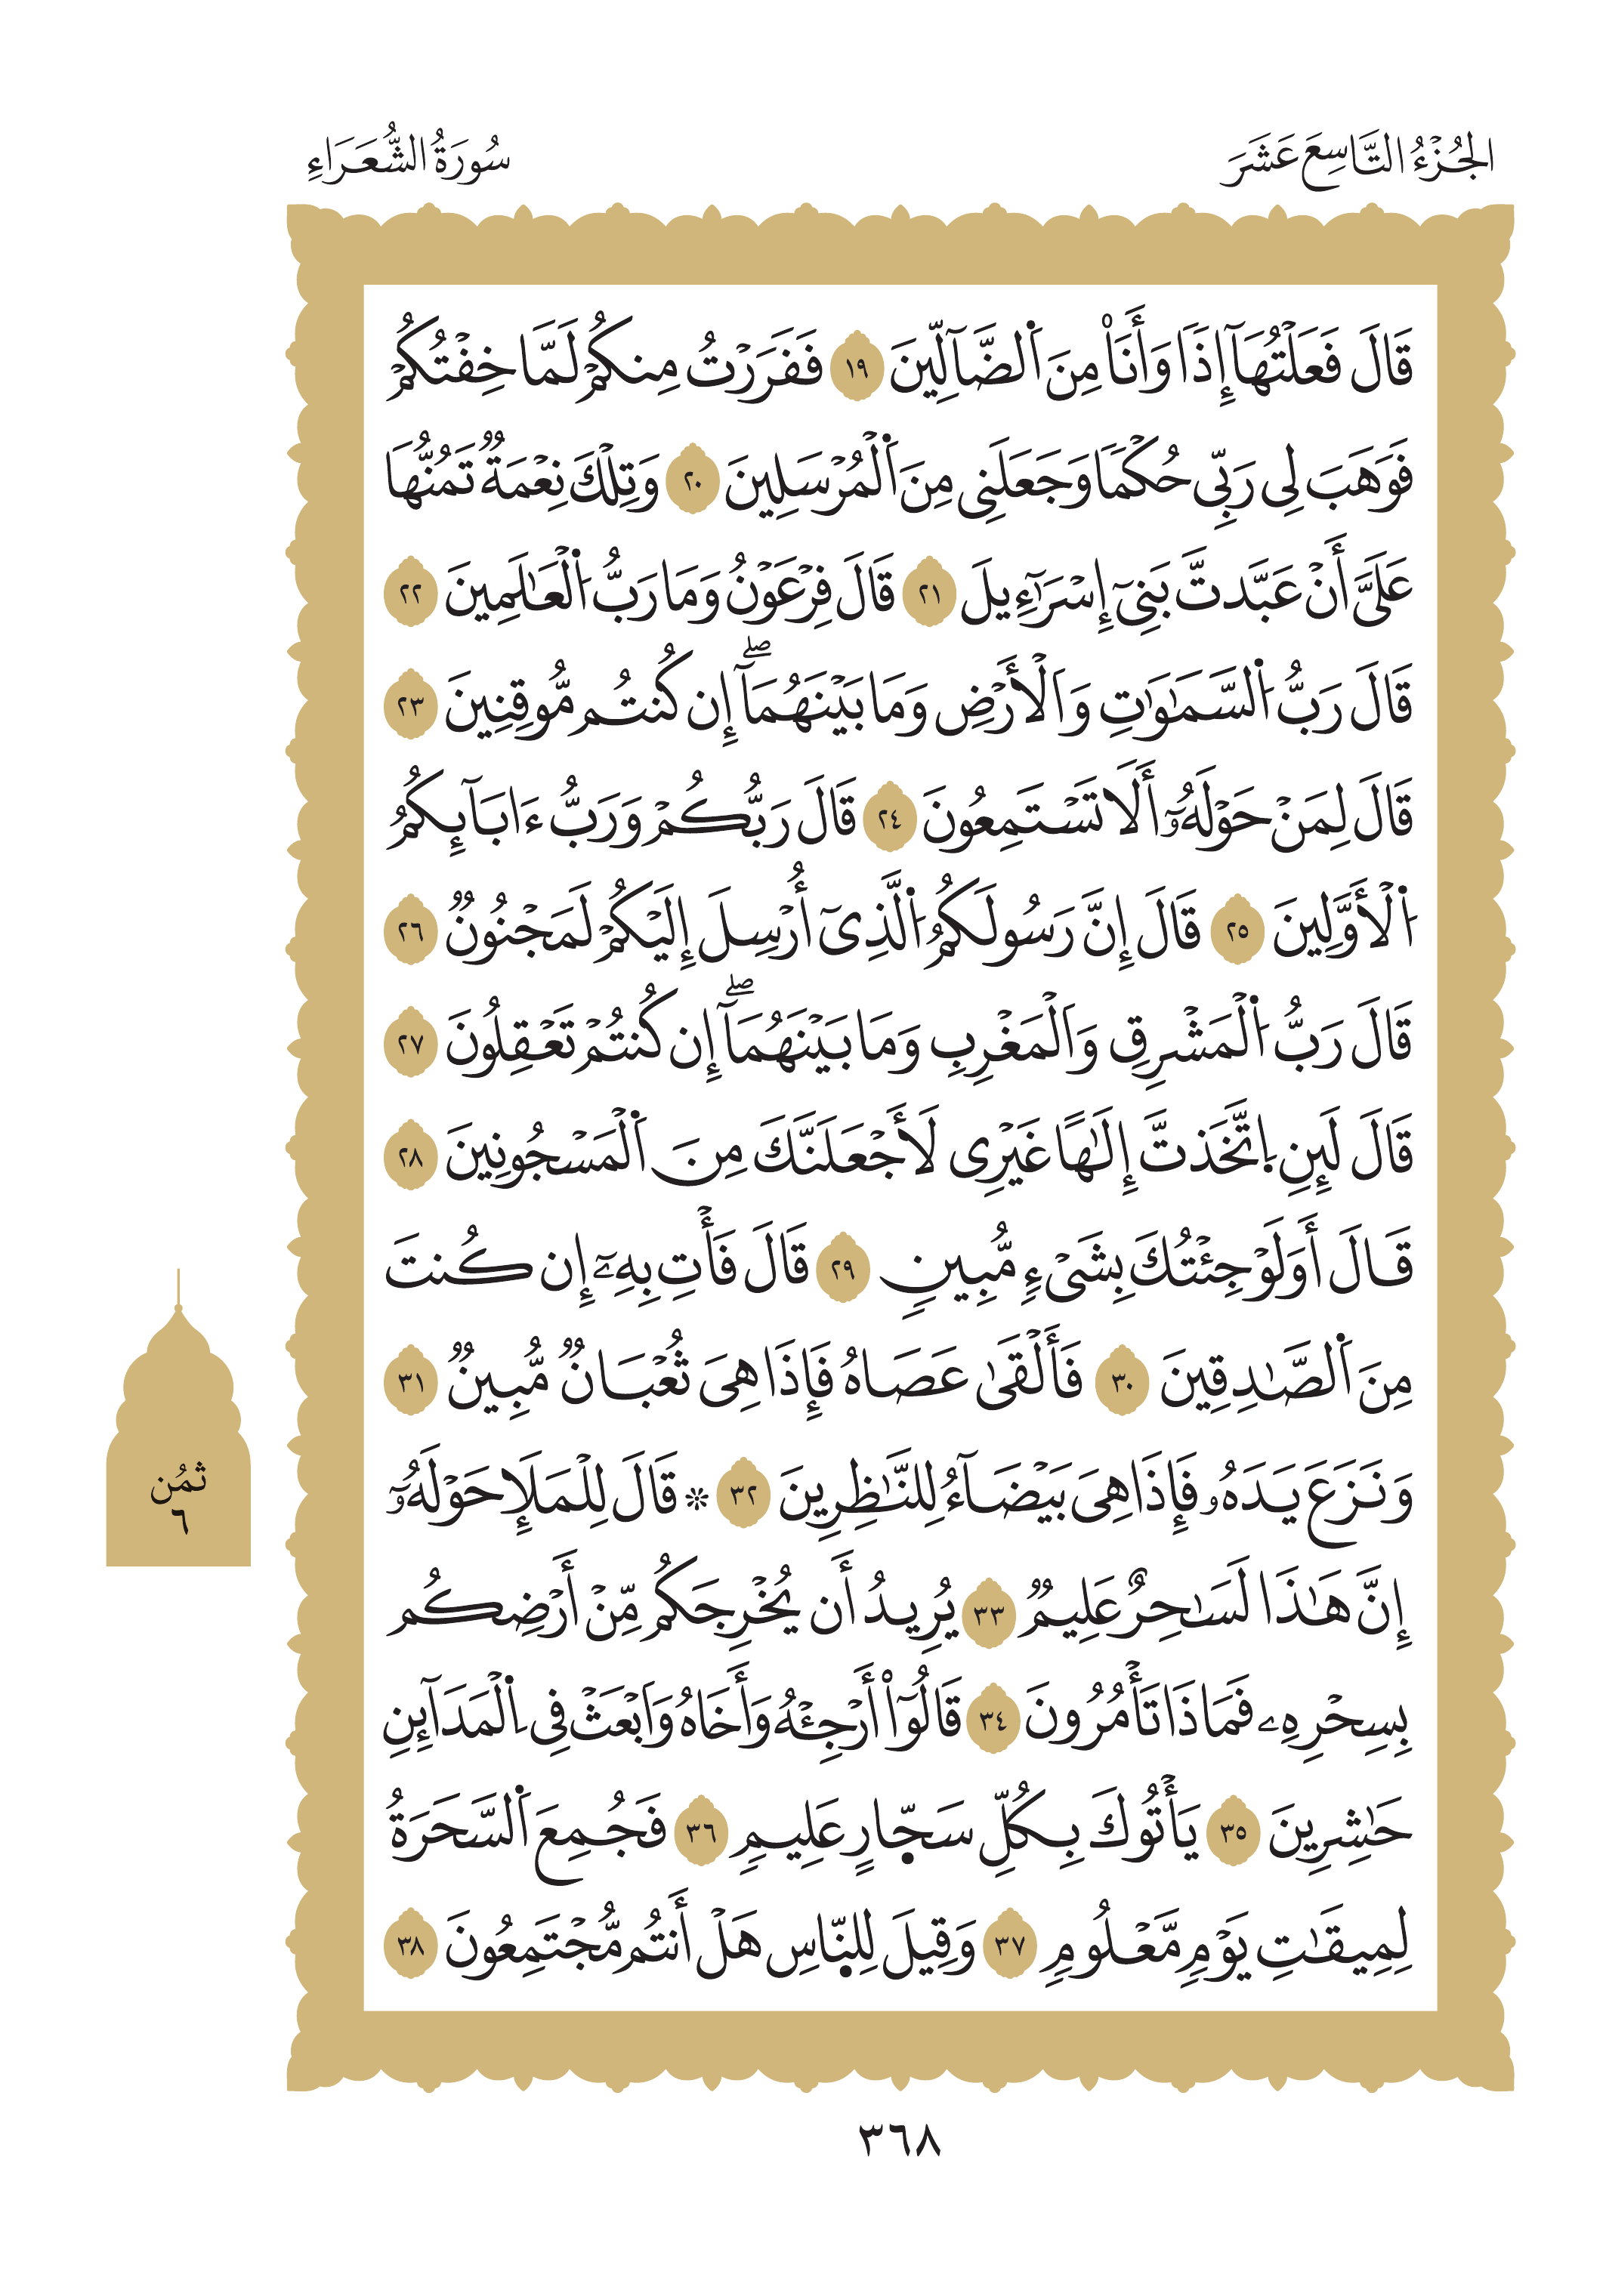 الجُزْءُ التَّاسِعَ عَشَرَ
سُورَةُ الشُّعَرَاءِ
قَالَ فَعَلْتُهَآ إِذًا وَأَنَا۠ مِنَ اَ۬لضَّآلِّينَ ١٩ فَفَرَرْتُ مِنكُمْ لَمَّا خِفْتُكُمْ
فَوَهَبَ لِى رَبِّى حُكْمًا وَجَعَلَنِى مِنَ اَ۬لْمُرْسَلِينَ ٢٠ وَتِلْكَ نِعْمَةٌ تَمُنُّهَا
عَلَىَّ أَنْ عَبَّدتَّ بَنِىٓ إِسْرَـٰٓءِيلَ ٢١ قَالَ فِرْعَوْنُ وَمَا رَبُّ اُ۬لْعَـٰلَمِينَ ٢٢
قَالَ رَبُّ اُ۬لسَّمَـٰوَٰتِ وَالْأَرْضِ وَمَا بَيْنَهُمَآ ۖ إِن كُنتُم مُّوقِنِينَ ٢٣
قَالَ لِمَنْ حَوْلَهُۥٓ أَلَا تَسْتَمِعُونَ ٢٤ قَالَ رَبُّكُمْ وَرَبُّ ءَابَآئِكُمُ
اُ۬لْأَوَّلِينَ ٢٥ قَالَ إِنَّ رَسُولَكُمُ اُ۬لَّذِىٓ أُرْسِلَ إِلَيْكُمْ لَمَجْنُونٌ ٢٦
قَالَ رَبُّ اُ۬لْمَشْرِقِ وَالْمَغْرِبِ وَمَا بَيْنَهُمَآ ۖ إِن كُنتُمْ تَعْقِلُونَ ٢٧
قَالَ لَئِنِ اِ۪تَّخَذتَّ إِلَـٰهًا غَيْرِى لَأَجْعَلَنَّكَ مِنَ اَ۬لْمَسْجُونِينَ ٢٨
قَالَ أَوَلَوْ جِئْتُكَ بِشَىْءٍ مُّبِينٍ ٢٩ قَالَ فَأْتِ بِهِۦٓ إِن كُنتَ
مِنَ اَ۬لصَّـٰدِقِينَ ٣٠ فَأَلْقَىٰ عَصَاهُ فَإِذَا هِىَ ثُعْبَانٌ مُّبِينٌ ٣١
وَنَزَعَ يَدَهُۥ فَإِذَا هِىَ بَيْضَآءُ لِلنَّـٰظِرِينَ ٣٢ ۞ قَالَ لِلْمَلَإِ حَوْلَهُۥٓ
إِنَّ هَـٰذَا لَسَـٰحِرٌ عَلِيمٌ ٣٣ يُرِيدُ أَن يُخْرِجَكُم مِّنْ أَرْضِكُم
بِسِحْرِهِۦ فَمَاذَا تَأْمُرُونَ ٣٤ قَالُوٓا۟ أَرْجِئْهُ وَأَخَاهُ وَابْعَثْ فِى اِ۬لْمَدَآئِنِ
حَـٰشِرِينَ ٣٥ يَأْتُوكَ بِكُلِّ سَحّ۪ارٍ عَلِيمٍ ٣٦ فَجُمِعَ اَ۬لسَّحَرَةُ
لِمِيقَـٰتِ يَوْمٍ مَّعْلُومٍ ٣٧ وَقِيلَ لِلنّ۪اسِ هَلْ أَنتُم مُّجْتَمِعُونَ ٣٨
ثمُن
٦
٣٦٨